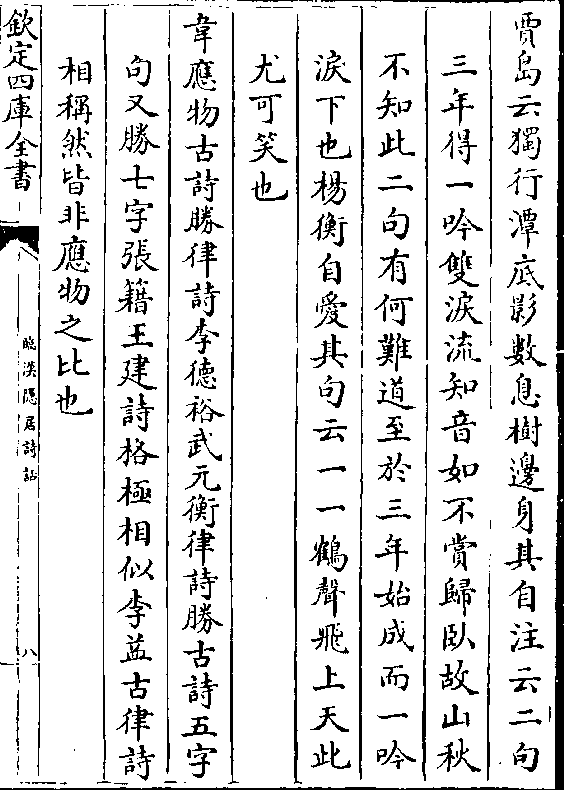 賈島云獨行潭底影數息樹邊身其自注云二句
三年得一吟雙淚流知音如不賞歸臥故山秋
不知此二句有何難道至於三年始成而一吟
淚下也楊衡自愛其句云一一鶴聲飛上天此
尤可笑也
韋應物古詩勝律詩李德裕武元衡律詩勝古詩五字
句又勝七字張籍王建詩格極相似李益古律詩
相稱然皆非應物之比也
欽定四庫全書
臨漢隱居詩話
八